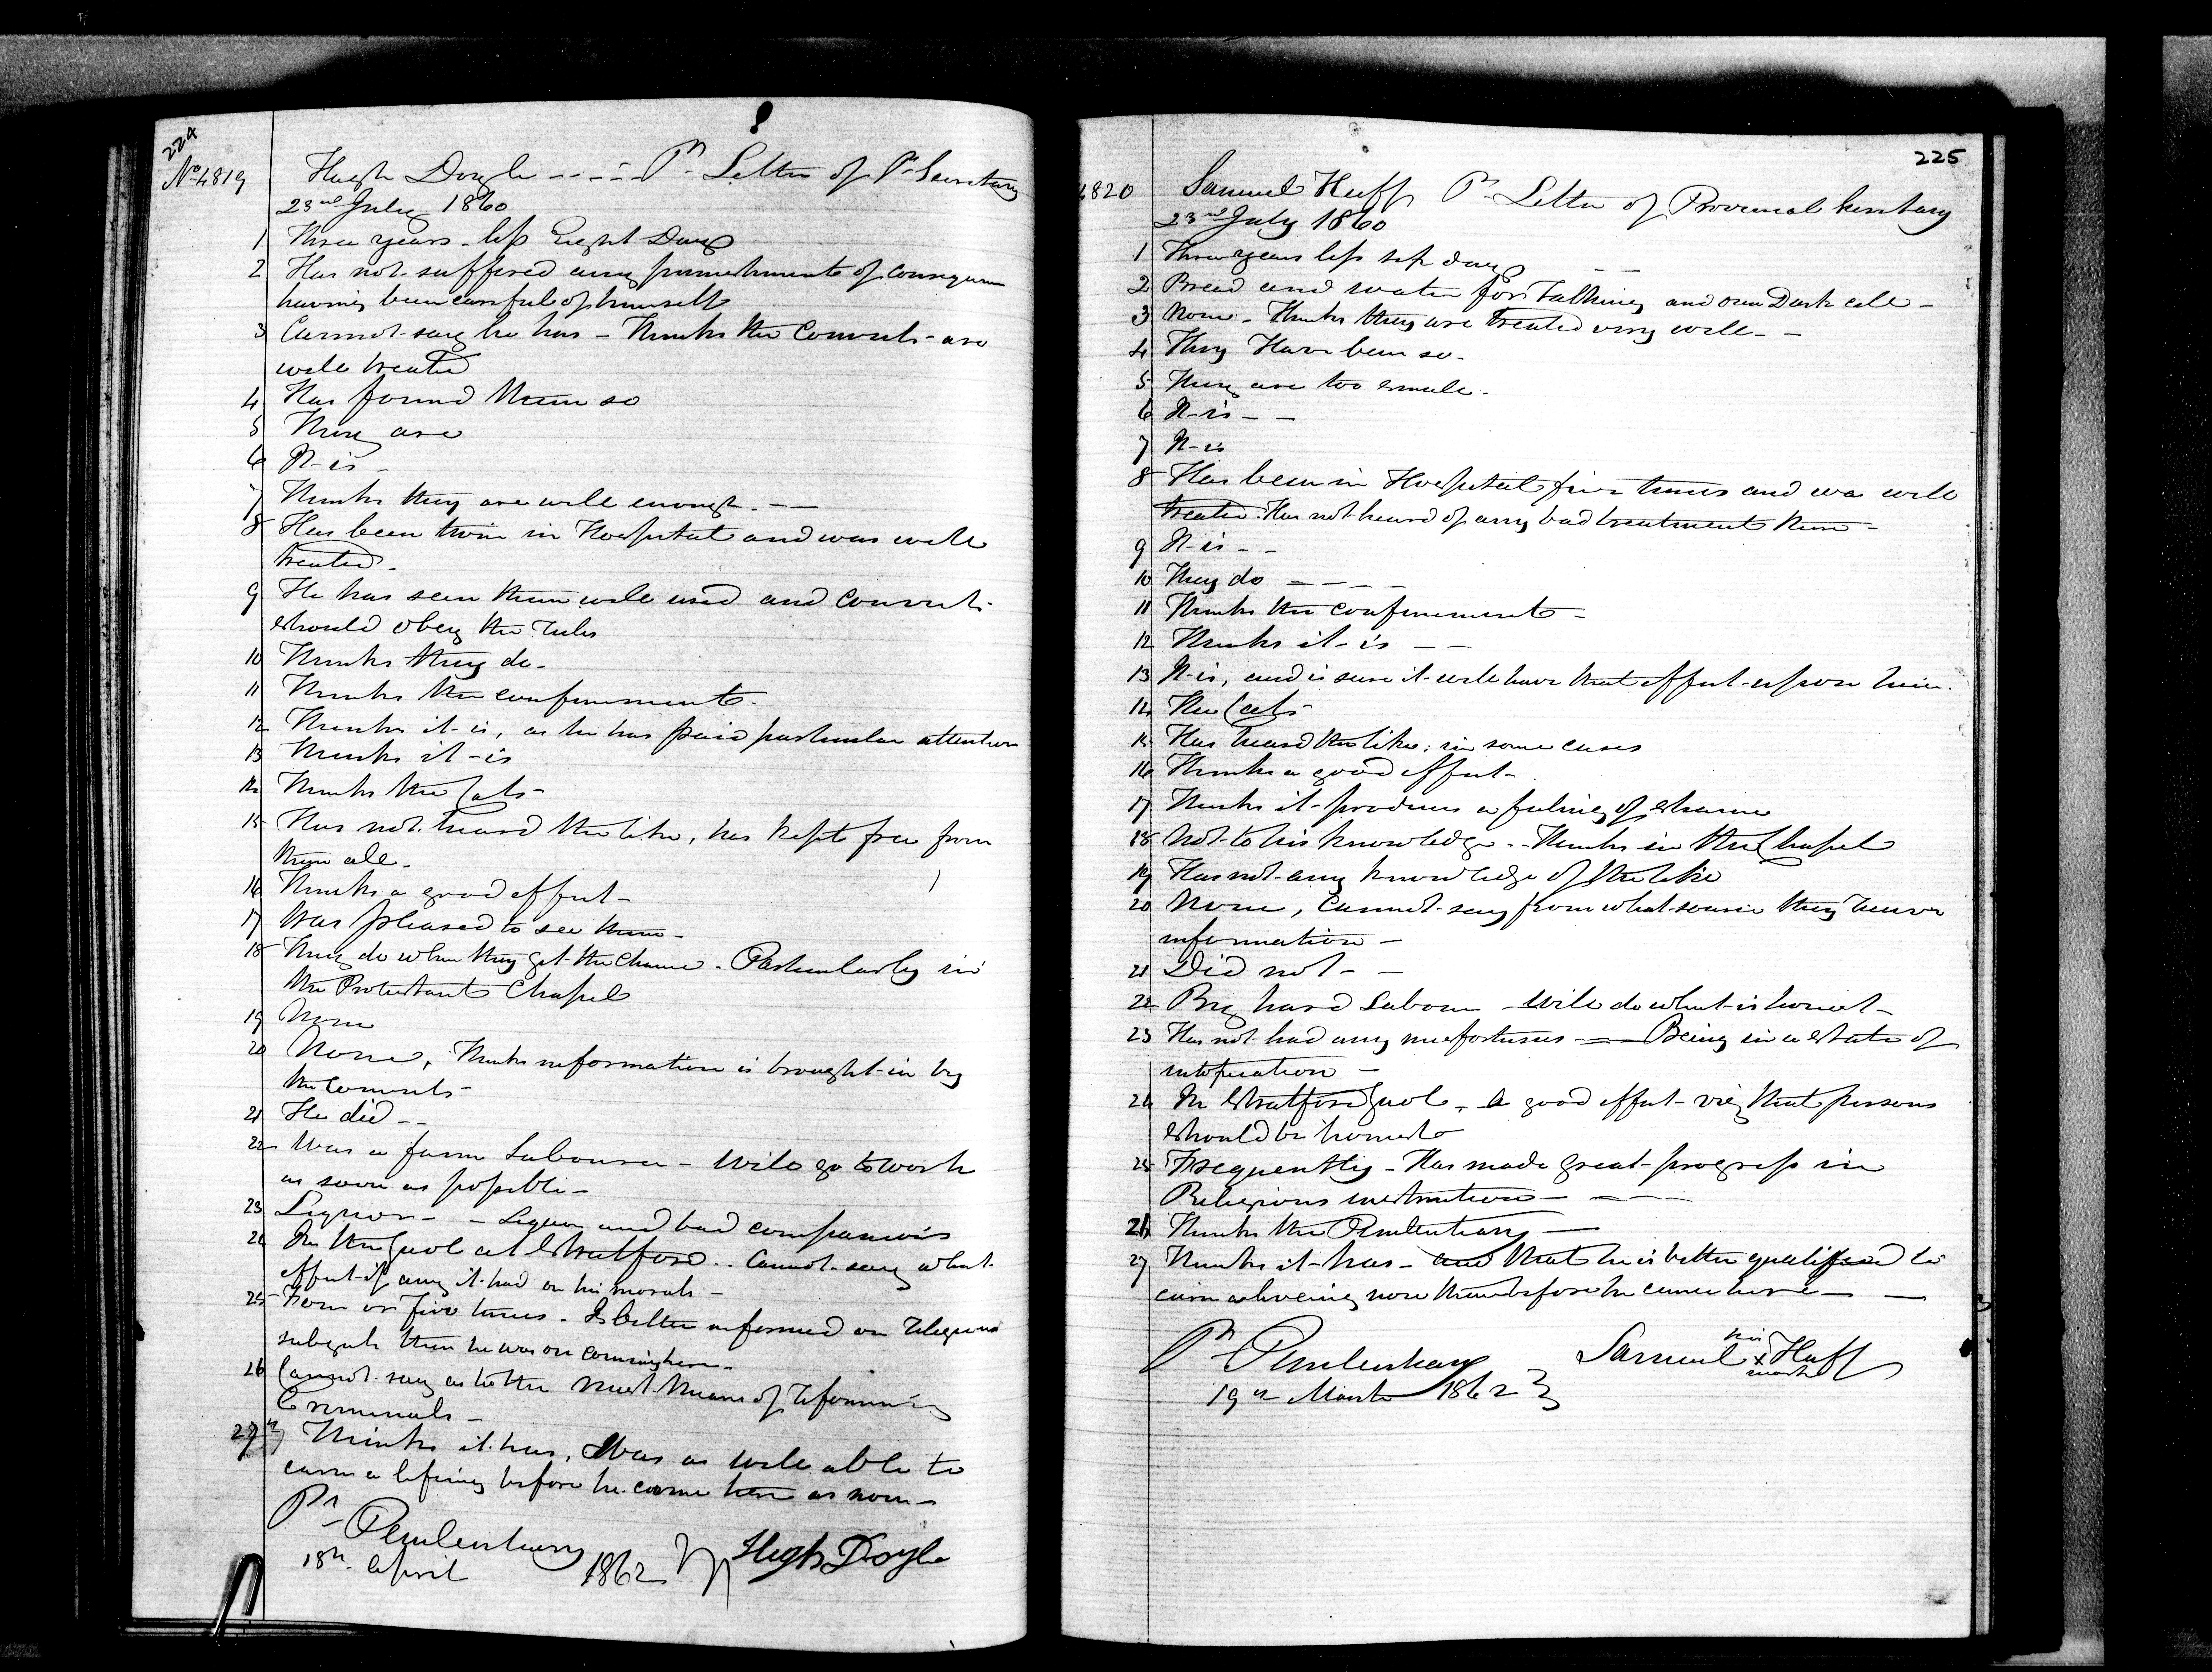 224
No 4819
Hugh Doyle - - - - Pr Letter of P. Secretary
23rd July 1860
1 Three years less Eight Days
2 Has not suffered any punishments of consequence
having been careful of himself
3 Cannot say he has - Thinks the Convicts are
well treated
4 Has found them so
5 They are
6 It is -
7 Thinks they are well enough. - -
8 Has been twice in Hospital and was well
treated.
9 He has seen them well used and convicts
should obey the rules
10 Thinks they do.
11 Thinks the confinement.
12 Thinks it is, as he has paid particular attention
13 Thinks it is
14 Thinks the Cats -
15 Has not heard the like, has kept free from
them all.
16 Thinks a good effect -
17 Was pleased to see them -
18 They do when they get the chance. Particularly in
the Protestant Chapel
19 None
20 None, Thinks information is brought in by
the Convicts -
21 He did - -
22 Was a farm Labourer - Will go to work
as soon as possible -
23 Liquor - - Liquor and bad companions
24 In the Gaol at Stratford. . Cannot say what
effect if any it had on his morals -
25 Four or five times. Is better informed on religious
subjects than he was on coming here.
26 Cannot say as to the Means of reforming
Criminals -
27 Thinks it has. Was as well able to
earn a living before he came here as now -
Pr Penitentiary
18th April 1862 Hugh Doyle
225
4820
Samuel Huff Pr Letter of Provincial Secretary
23rd July 1860
1 Three years less six days - -
2 Bread and water for Talking and one Dark cell -
3 None - Thinks they are treated very well - -
4 They Have been so.
5 They are too small.
6 It is - -
7 It is
8 Has been in Hospital five times and was well
treated. Has not heard of any bad treatment there -
9 It is - -
10 They do - - - -
11 Thinks the confinement -
12 Thinks it is - -
13 It is, and is sure it will have that effect upon him.
14 The Cats
15 Has heard the like; in some cases
16 Thinks a good effect -
17 Thinks it produces a feeling of shame
18 Not to his knowledge. - Thinks in the Chapel
19 Has not any knowledge of the like
20 None, Cannot say from what source they have
information -
21 Did not - -
22 By hard Labour - Will do what is honest -
23 Has not had any misfortunes - Being in a state of
intoxication -
24 In Stratford Gaol - A good effect viz that persons
should be honest
25 Frequently - Has made great progress in
Religious instruction - - - -
26 Thinks the Penitentiary -
27 Thinks it has - and that he is better qualified to
earn a living now than before he came here - -
Pr Penitentiary
19th March 1862
Samuel his x mark Huff